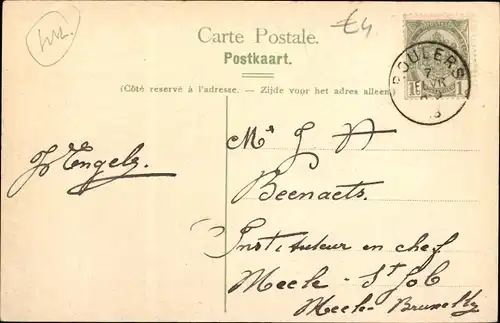 €4
Carte Postale.
Postkaart.
(Côté reservé à l'adresse. – Zijde voor het adres alleen)
ROULERS
7
1
Mr J A
J Engels.
Beenaets.
Instituteur en chef
Meele - St Job
Meele-Bruxelles